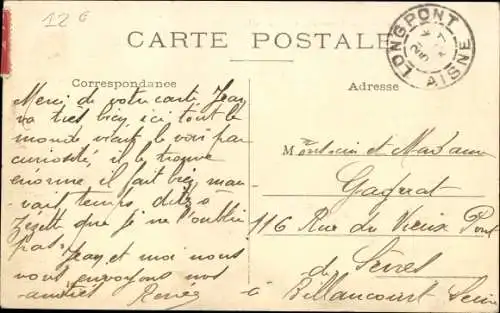 12 €
CARTE POSTALE
LONGPONT
AISNE
Correspondance
Adresse
Merci de votre carte, Jean
va très bien, ici tout le
monde vient le voir par
curiosité, il le trouve
énorme il fait bien mau
vait temps dites à
que je ne l'oublie
pas. Jean et moi nous
vous envoyons nos
amitiés Renée
Monsieur et Madame
Gaguat
116 Rue du Vieux Pont
de Sèvres
à Billancourt Seine